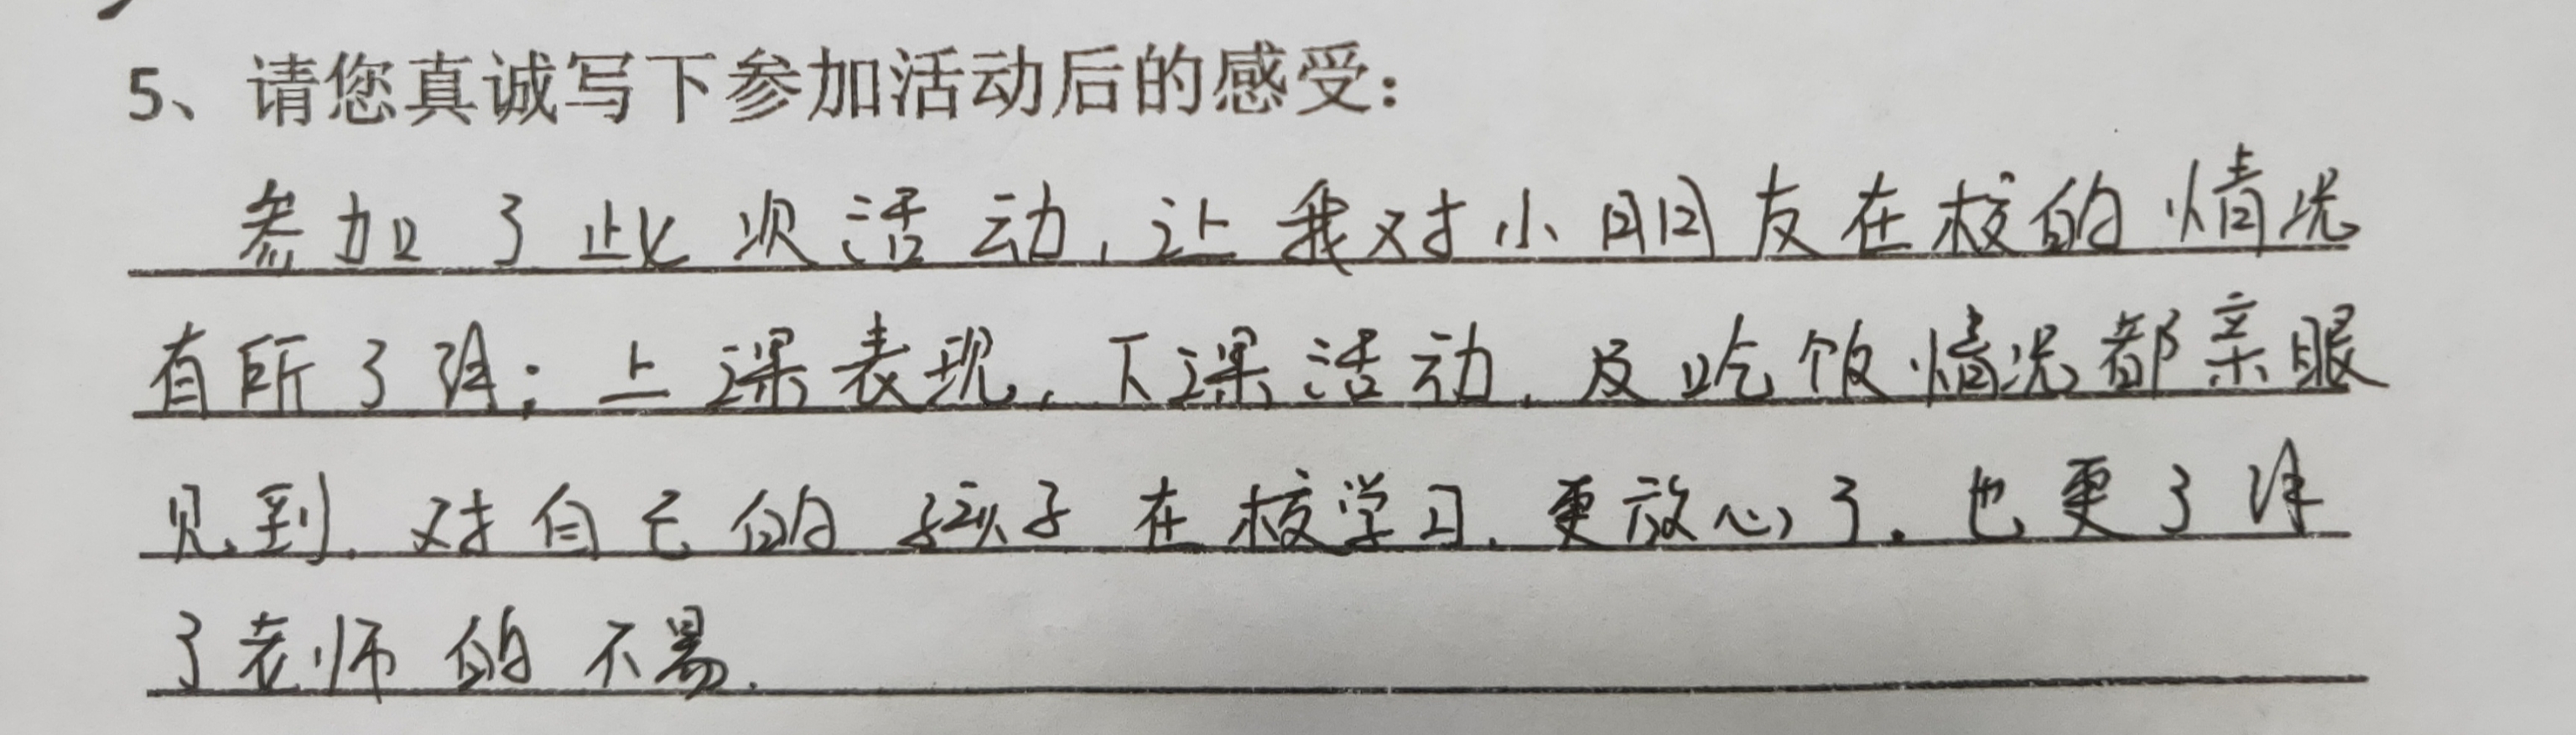 5、请您真诚写下参加活动后的感受：
参加了此次活动，让我对小朋友在校的情况
有所了解；上课表现，下课活动，及吃饭情况都亲眼
见到，对自己的孩子在校学习，更放心了。也更了解
了老师的不易.